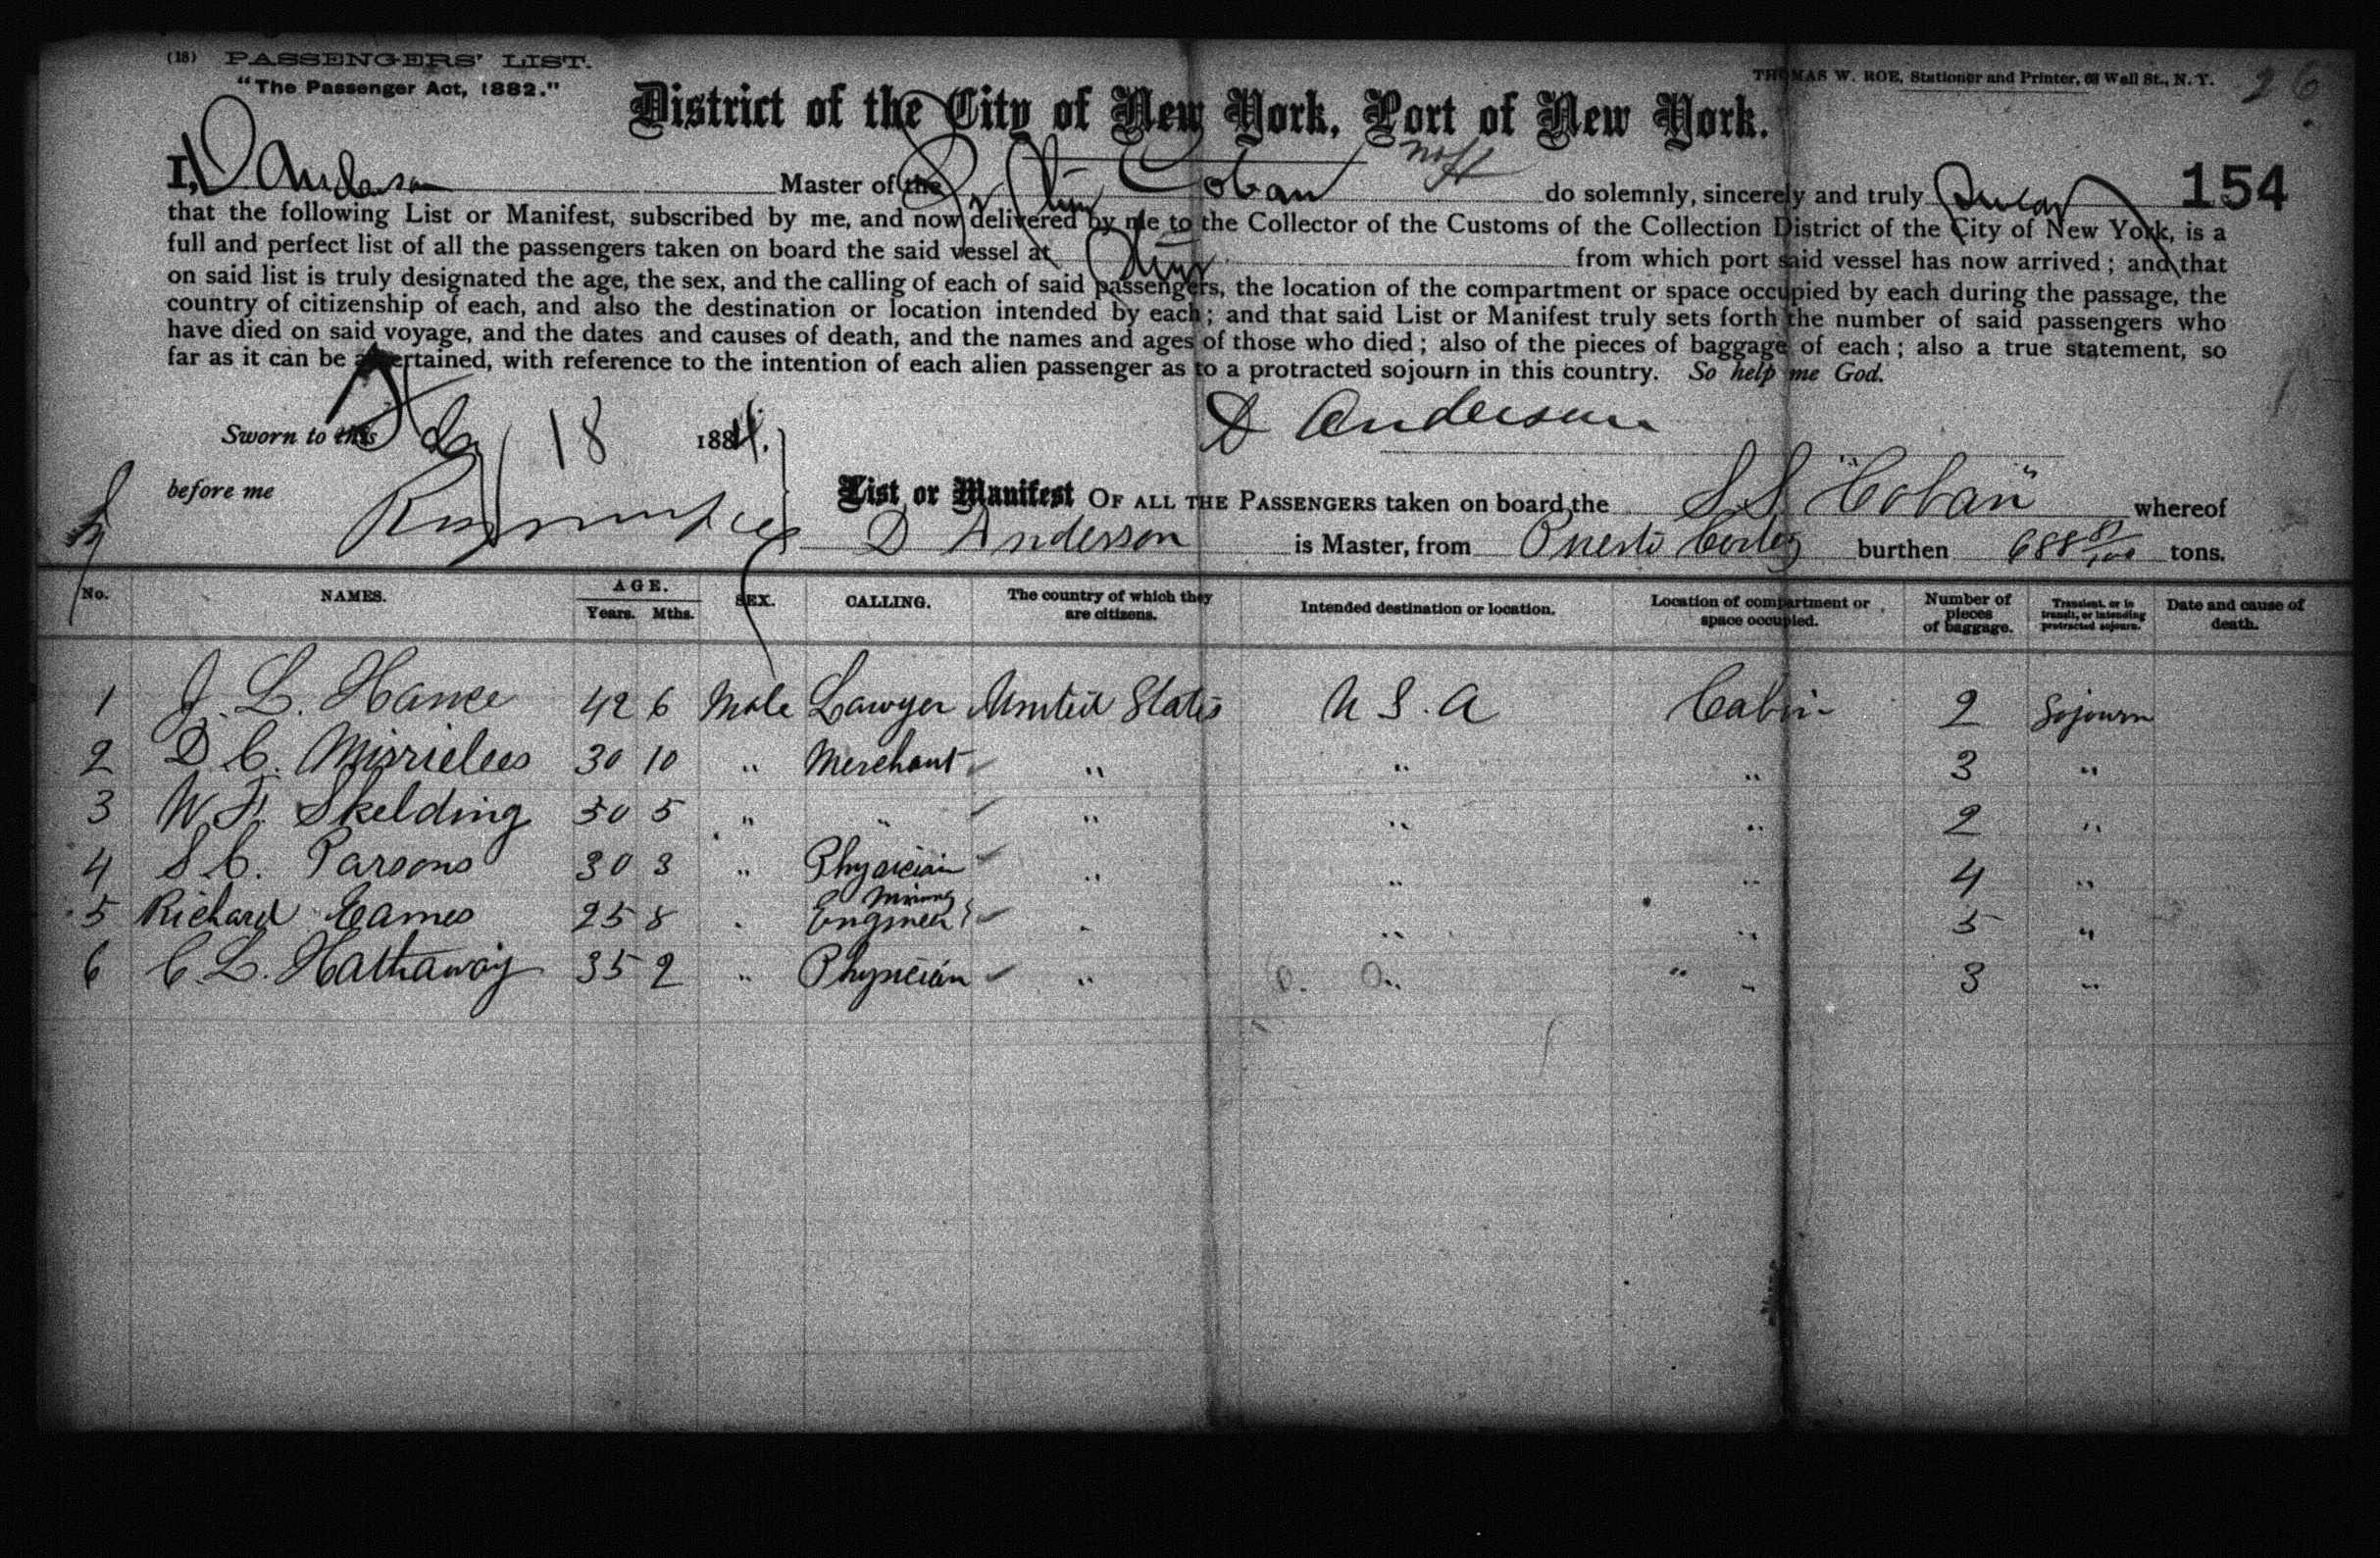 (18) PASSENGERS' LIST.
"The Passenger Act, 1882."
THOMAS W. ROE, Stationer and Printer, 63 Wall St., N. Y. 26
District of the City of New York, Port of New York.
154
I, D Anderson Master of the Coban do solemnly, sincerely and truly
that the following List or Manifest, subscribed by me, and now delivered by me to the Collector of the Customs of the Collection District of the City of New York, is a
full and perfect list of all the passengers taken on board the said vessel at from which port said vessel has now arrived; and that
on said list is truly designated the age, the sex, and the calling of each of said passengers, the location of the compartment or space occupied by each during the passage, the
country of citizenship of each, and also the destination or location intended by each; and that said List or Manifest truly sets forth the number of said passengers who
have died on said voyage, and the dates and causes of death, and the names and ages of those who died; also of the pieces of baggage of each; also a true statement, so
far as it can be ascertained, with reference to the intention of each alien passenger as to a protracted sojourn in this country. So help me God.
D Anderson
Sworn to this 18 1884.
before me
List or Manifest OF ALL THE PASSENGERS taken on board the S S "Coban" whereof
D Anderson is Master, from Puerto Cortez burthen 688 81/100 tons.
No. NAMES. AGE. Years. Mths. SEX. CALLING. The country of which they are citizens. Intended destination or location. Location of compartment or space occupied. Number of pieces of baggage. Transient, or in transit, or intending protracted sojourn. Date and cause of death.
1 J. L. Hance 42 6 Male Lawyer United States U S. A Cabin 2 Sojourn
2 D. C. Mirrielees 30 10 " Merchant " " " 3 "
3 W. F. Skelding 30 5 " " " " " 2 "
4 S. C. Parsons 30 3 " Physician " " " 4 "
5 Richard Eames 25 8 " Mining Engineer " " " 5 "
6 C. L. Hathaway 35 2 " Physician " " " 3 "